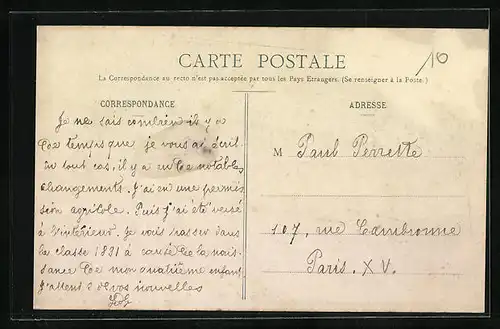 10
CARTE POSTALE
La Correspondance au recto n'est pas acceptée par tous les Pays Etrangers. (Se renseigner à la Poste.)
CORRESPONDANCE
ADRESSE
Je ne sais combien il y a
de temps que je vous ai écrit
En tout cas, il y a eu de notables
changements. J'ai eu une permis
sion agricole. Puis j'ai été versé
à l'intérieur. Je vais passer dans
la classe 1891 à cause de la nais-
sance de mon quatrième enfant
J'attends de vos nouvelles
M Paul Perrette
107, rue Cambronne
Paris. XV.